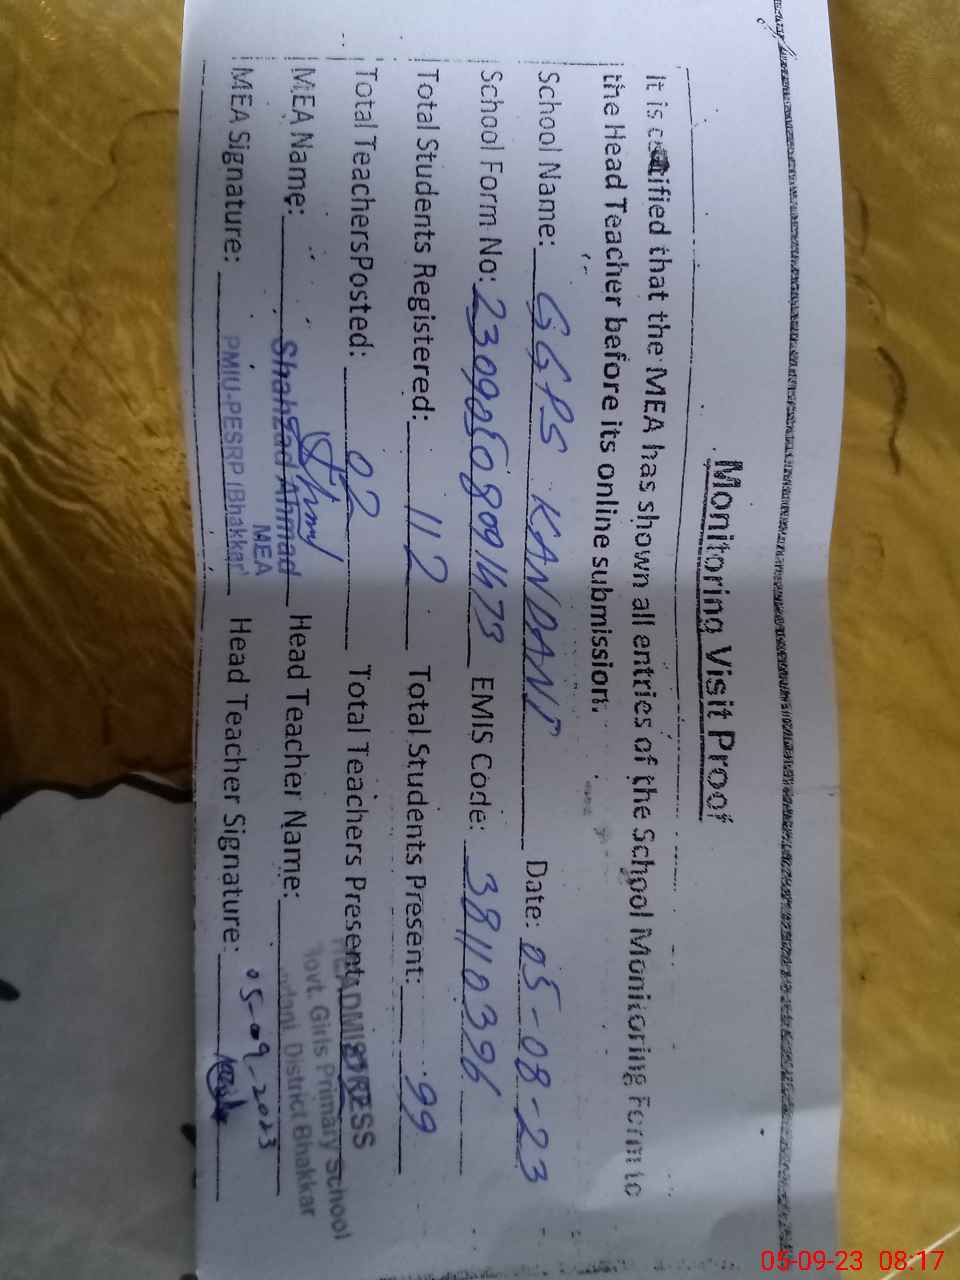 Monitoring Visit Proof
It is certified that the MEA has shown all entries of the School Monitoring Form to
the Head Teacher before its online submission.
School Name: GGPS KANDANI Date: 05-08-23
School Form No: EMIS Code: 38110396
Total Students Registered: 112 Total Students Present: 99
Total TeachersPosted: 02 Total Teachers Present:
MEA Name: Shahzad Ahmad Head Teacher Name:
MEA
MEA Signature: PMIU-PESRP (Bhakkar) Head Teacher Signature:
HEADMISTRESS
Govt. Girls Primary School
District Bhakkar
05-09-2023
05-09-23 08:17